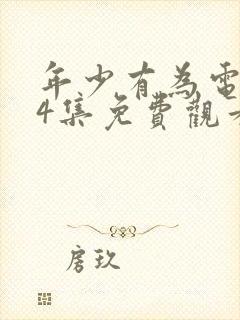 年少有為電
4集免費觀
房玖